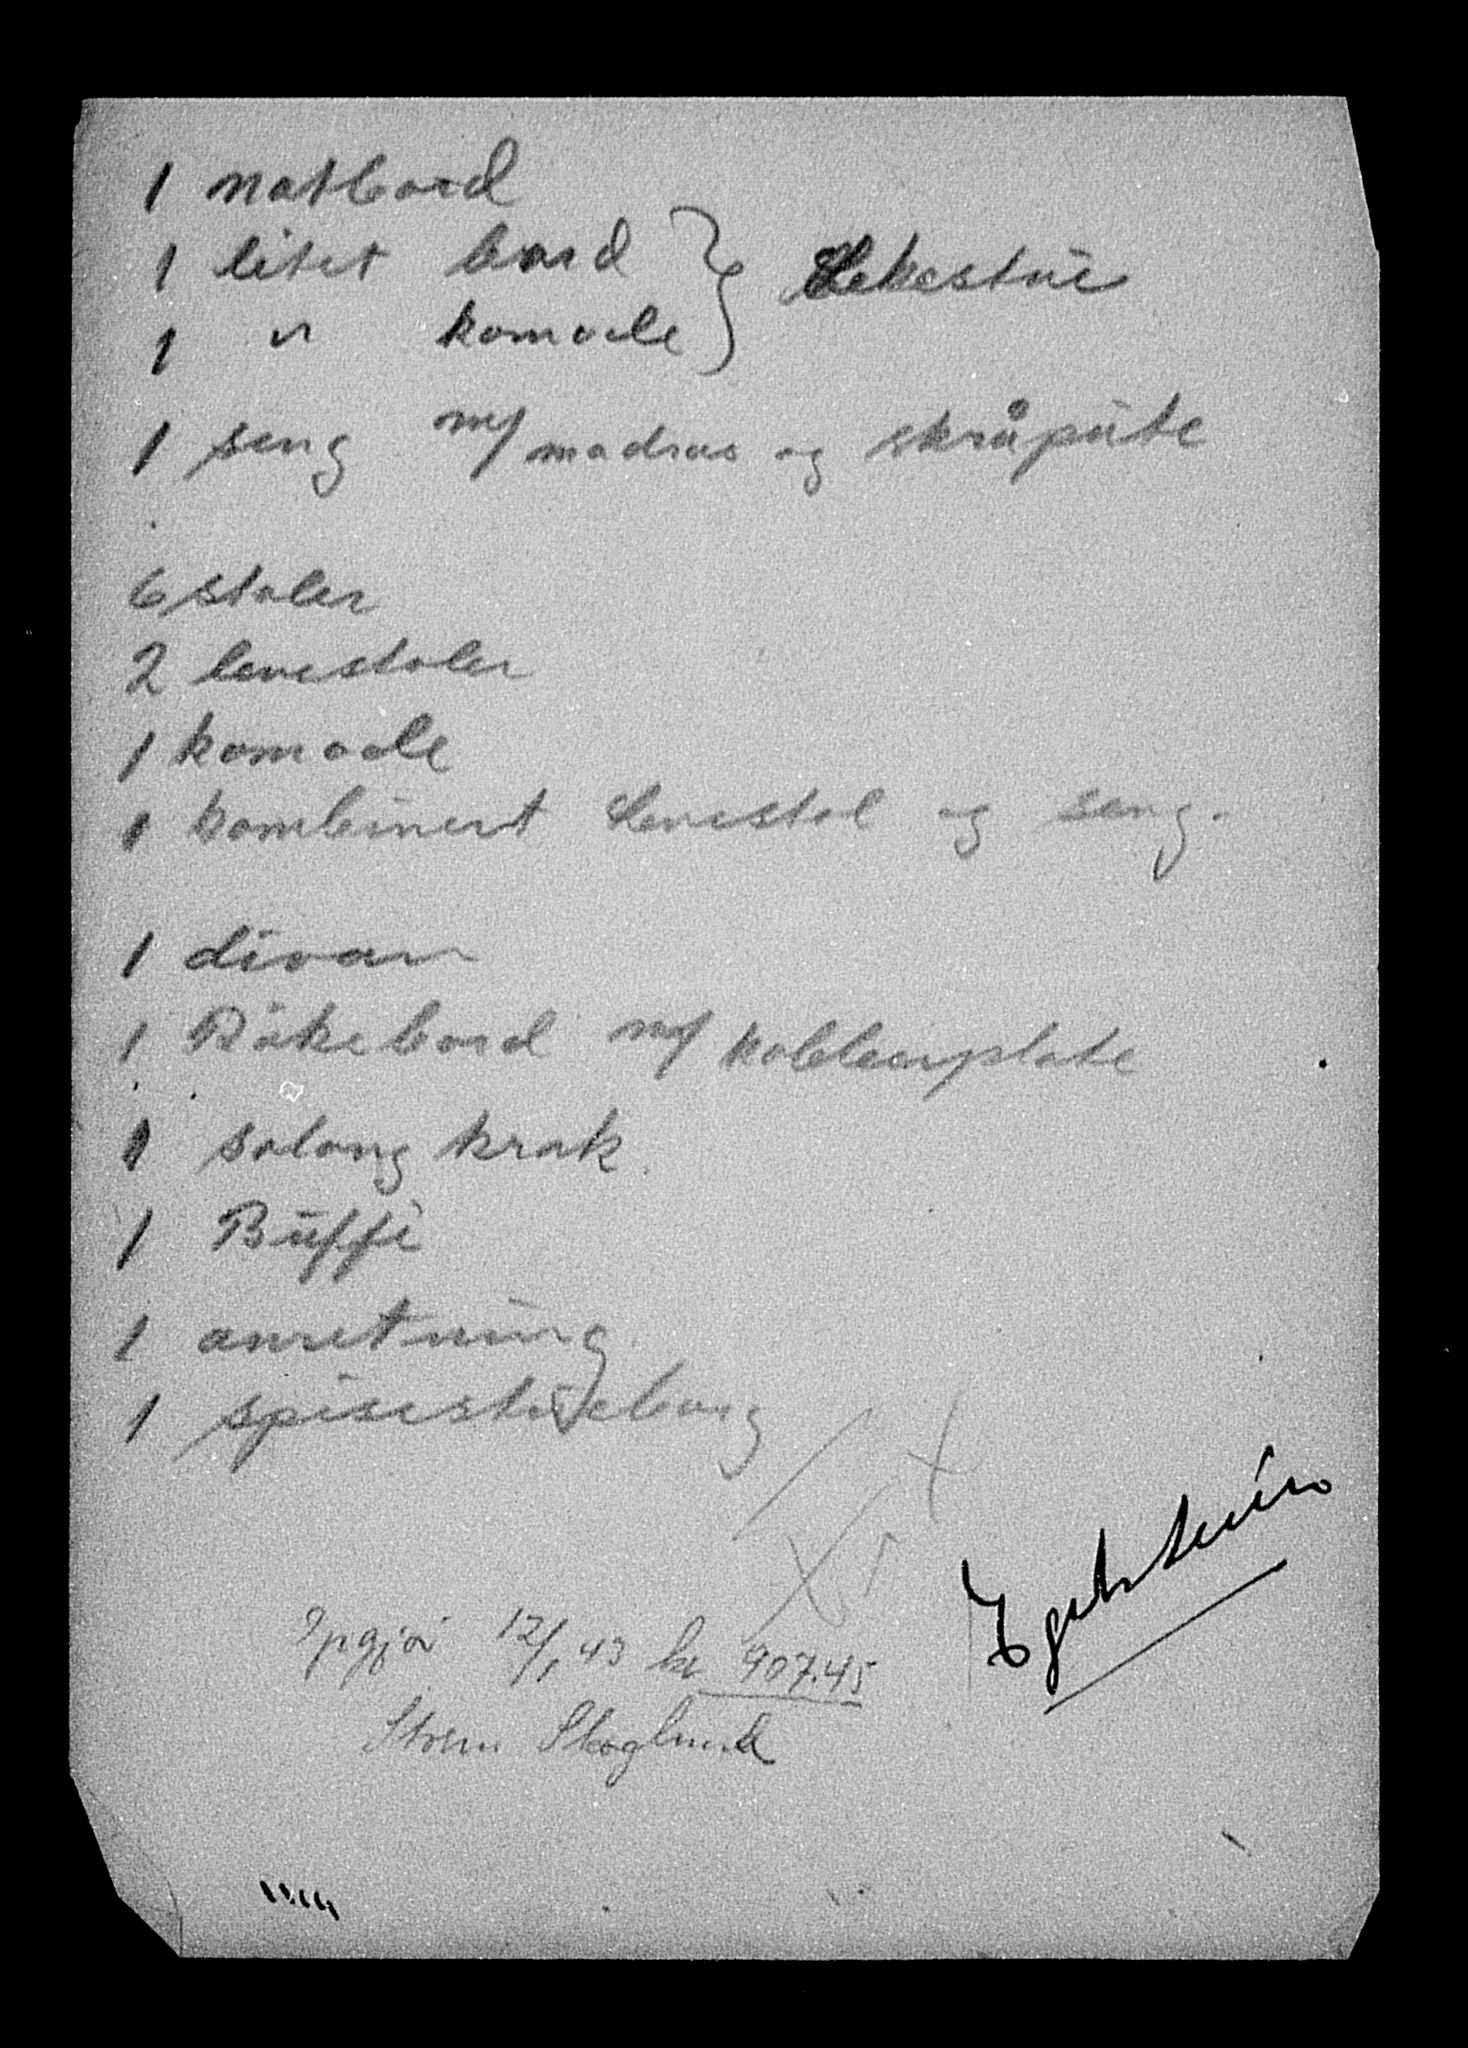 1 natbord
1 litet bord } Lekestue
1 " komode }
1 seng m/ madras og skråpüte
6 stoler
2 lenestoler
1 komode
1 kombinert Lenestol og seng.
1 divan
1 Rökebord m/ kobberplate
1 salong krak.
1 Büffe
1 anretning
1 spisestuebord
Egelstein
Opgjør 12/1 43 kr 907.45
Strøm Skoglund